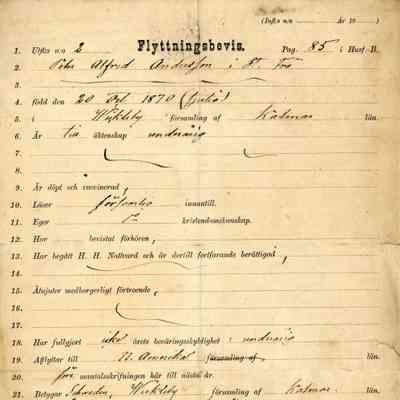 (Infts n:o År 18 )
1. Utfts n:o 2 Flyttningsbevis. Pag. 85 i Husf.-B.
2. Alfred Andersson i
3.
4. född den 20 1870
5. i församling af Kalmar län.
6. Är äktenskap
7.
8.
9. Är döpt och vaccinerad,
10. Läser försvarlig innantill.
11. Eger kristendomskunskap.
12. Har bevistat förhören,
13. Har begått H. H. Nattvard och är dertill fortfarande berättigad,
14.
15. Åtnjuter medborgerligt förtroende,
16.
17.
18. Har fullgjort icke årets beväringsskyldighet: underårig
19. Afflyttar till N. Amerika församling af län.
20. före mantalsskrifningen här till nästa år.
21. Betygar församling af Kalmar län.